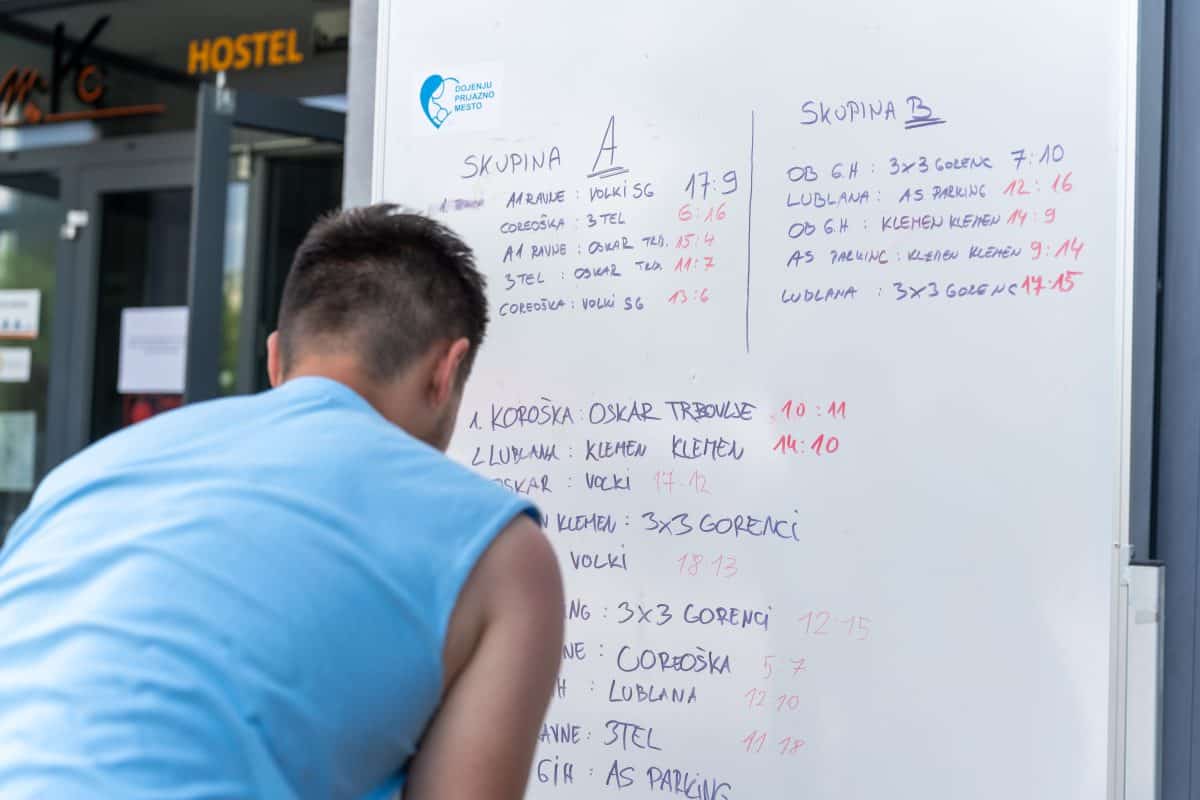 HOSTEL
MKC
DOJENJU
PRIJAZNO
MESTO
SKUPINA A
A1 RAVNE : VOLKI SG 17:9
COREOŠKA : 3TEL 6:16
A1 RAVNE : OSKAR TRB. 15:4
3TEL : OSKAR TRB. 11:7
COREOŠKA : VOLKI SG 13:6
SKUPINA B
OB G.H : 3X3 GORENC 7:10
LUBLANA : AS PARKING 12:16
OB G.H : KLEMEN KLEMEN 14:9
AS PARKING : KLEMEN KLEMEN 9:14
LUBLANA : 3X3 GORENC 17:15
1. KOROŠKA : OSKAR TRBOVLJE 10:11
2. LUBLANA : KLEMEN KLEMEN 14:10
OSKAR : VOLKI 17:12
N KLEMEN : 3X3 GORENCI
VOLKI 18:13
NG : 3X3 GORENCI 12:15
NE : COREOŠKA 5:7
H : LUBLANA 12:10
AVNE : 3TEL 11:18
GIH : AS PARKING